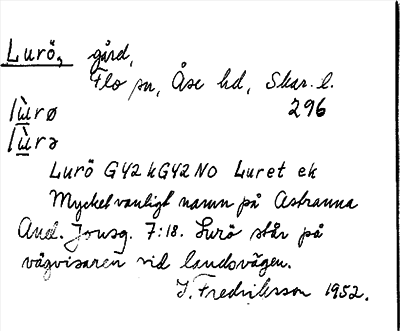 Lurö, gård,
Flo sn, Åse hd, Skar. l.
lùrø 296
lùrə
Lurö G42 kG42NO Luret ek
Mycket vanligt namn på Astranna
And. Jonsg. 7:18. Lurö står på
vägvisaren vid landsvägen.
I. Fredriksson 1952.